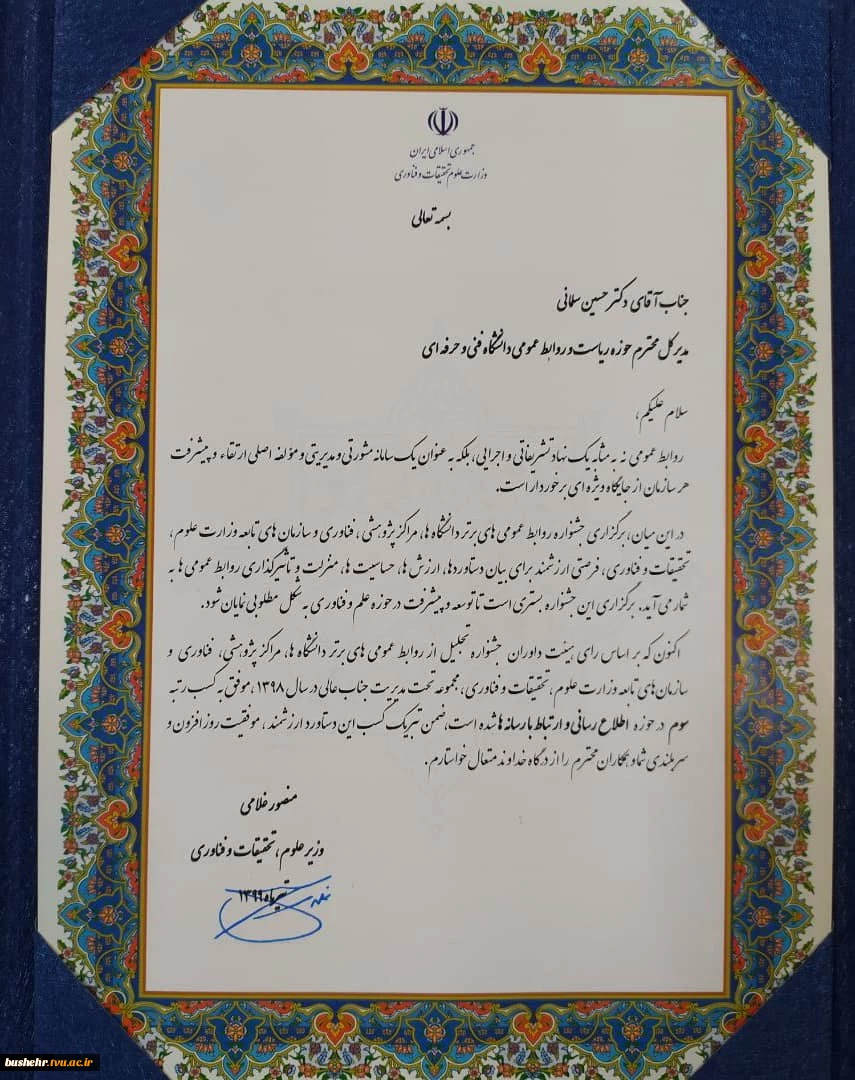 جمهوری اسلامی ایران
وزارت علوم تحقیقات و فناوری
بسمه تعالی
جناب آقای دکتر حسین سلمانی
مدیر کل محترم حوزه ریاست و روابط عمومی دانشگاه فنی و حرفه ای
سلام علیکم،
روابط عمومی نه به مثابه یک نهاد تشریفاتی و اجرایی، بلکه به عنوان یک سامانه مشورتی و مدیریتی و مؤلفه اصلی ارتقاء و پیشرفت
هر سازمان از جایگاه ویژه ای برخوردار است.
در این میان، برگزاری جشنواره روابط عمومی های برتر دانشگاه ها، مراکز پژوهشی، فناوری و سازمان های تابعه وزارت علوم،
تحقیقات و فناوری، فرصتی ارزشمند برای بیان دستاوردها، ارزش ها، حساسیت ها، منزلت و تأثیرگذاری روابط عمومی ها به
شمار می آید. برگزاری این جشنواره بستری است تا توسعه و پیشرفت در حوزه علم و فناوری به شکل مطلوبی نمایان شود.
اکنون که بر اساس رای هیئت داوران جشنواره تجلیل از روابط عمومی های برتر دانشگاه ها، مراکز پژوهشی، فناوری و
سازمان های تابعه وزارت علوم، تحقیقات و فناوری، مجموعه تحت مدیریت جناب عالی در سال ۱۳۹۸، موفق به کسب رتبه
سوم در حوزه اطلاع رسانی و ارتباط با رسانه ها شده است، ضمن تبریک کسب این دستاورد ارزشمند، موفقیت روز افزون و
سربلندی شما و همکاران محترم را از درگاه خداوند متعال خواستارم.
منصور غلامی
وزیر علوم، تحقیقات و فناوری
تیرماه ۱۳۹۹
bushehr.tvu.ac.ir